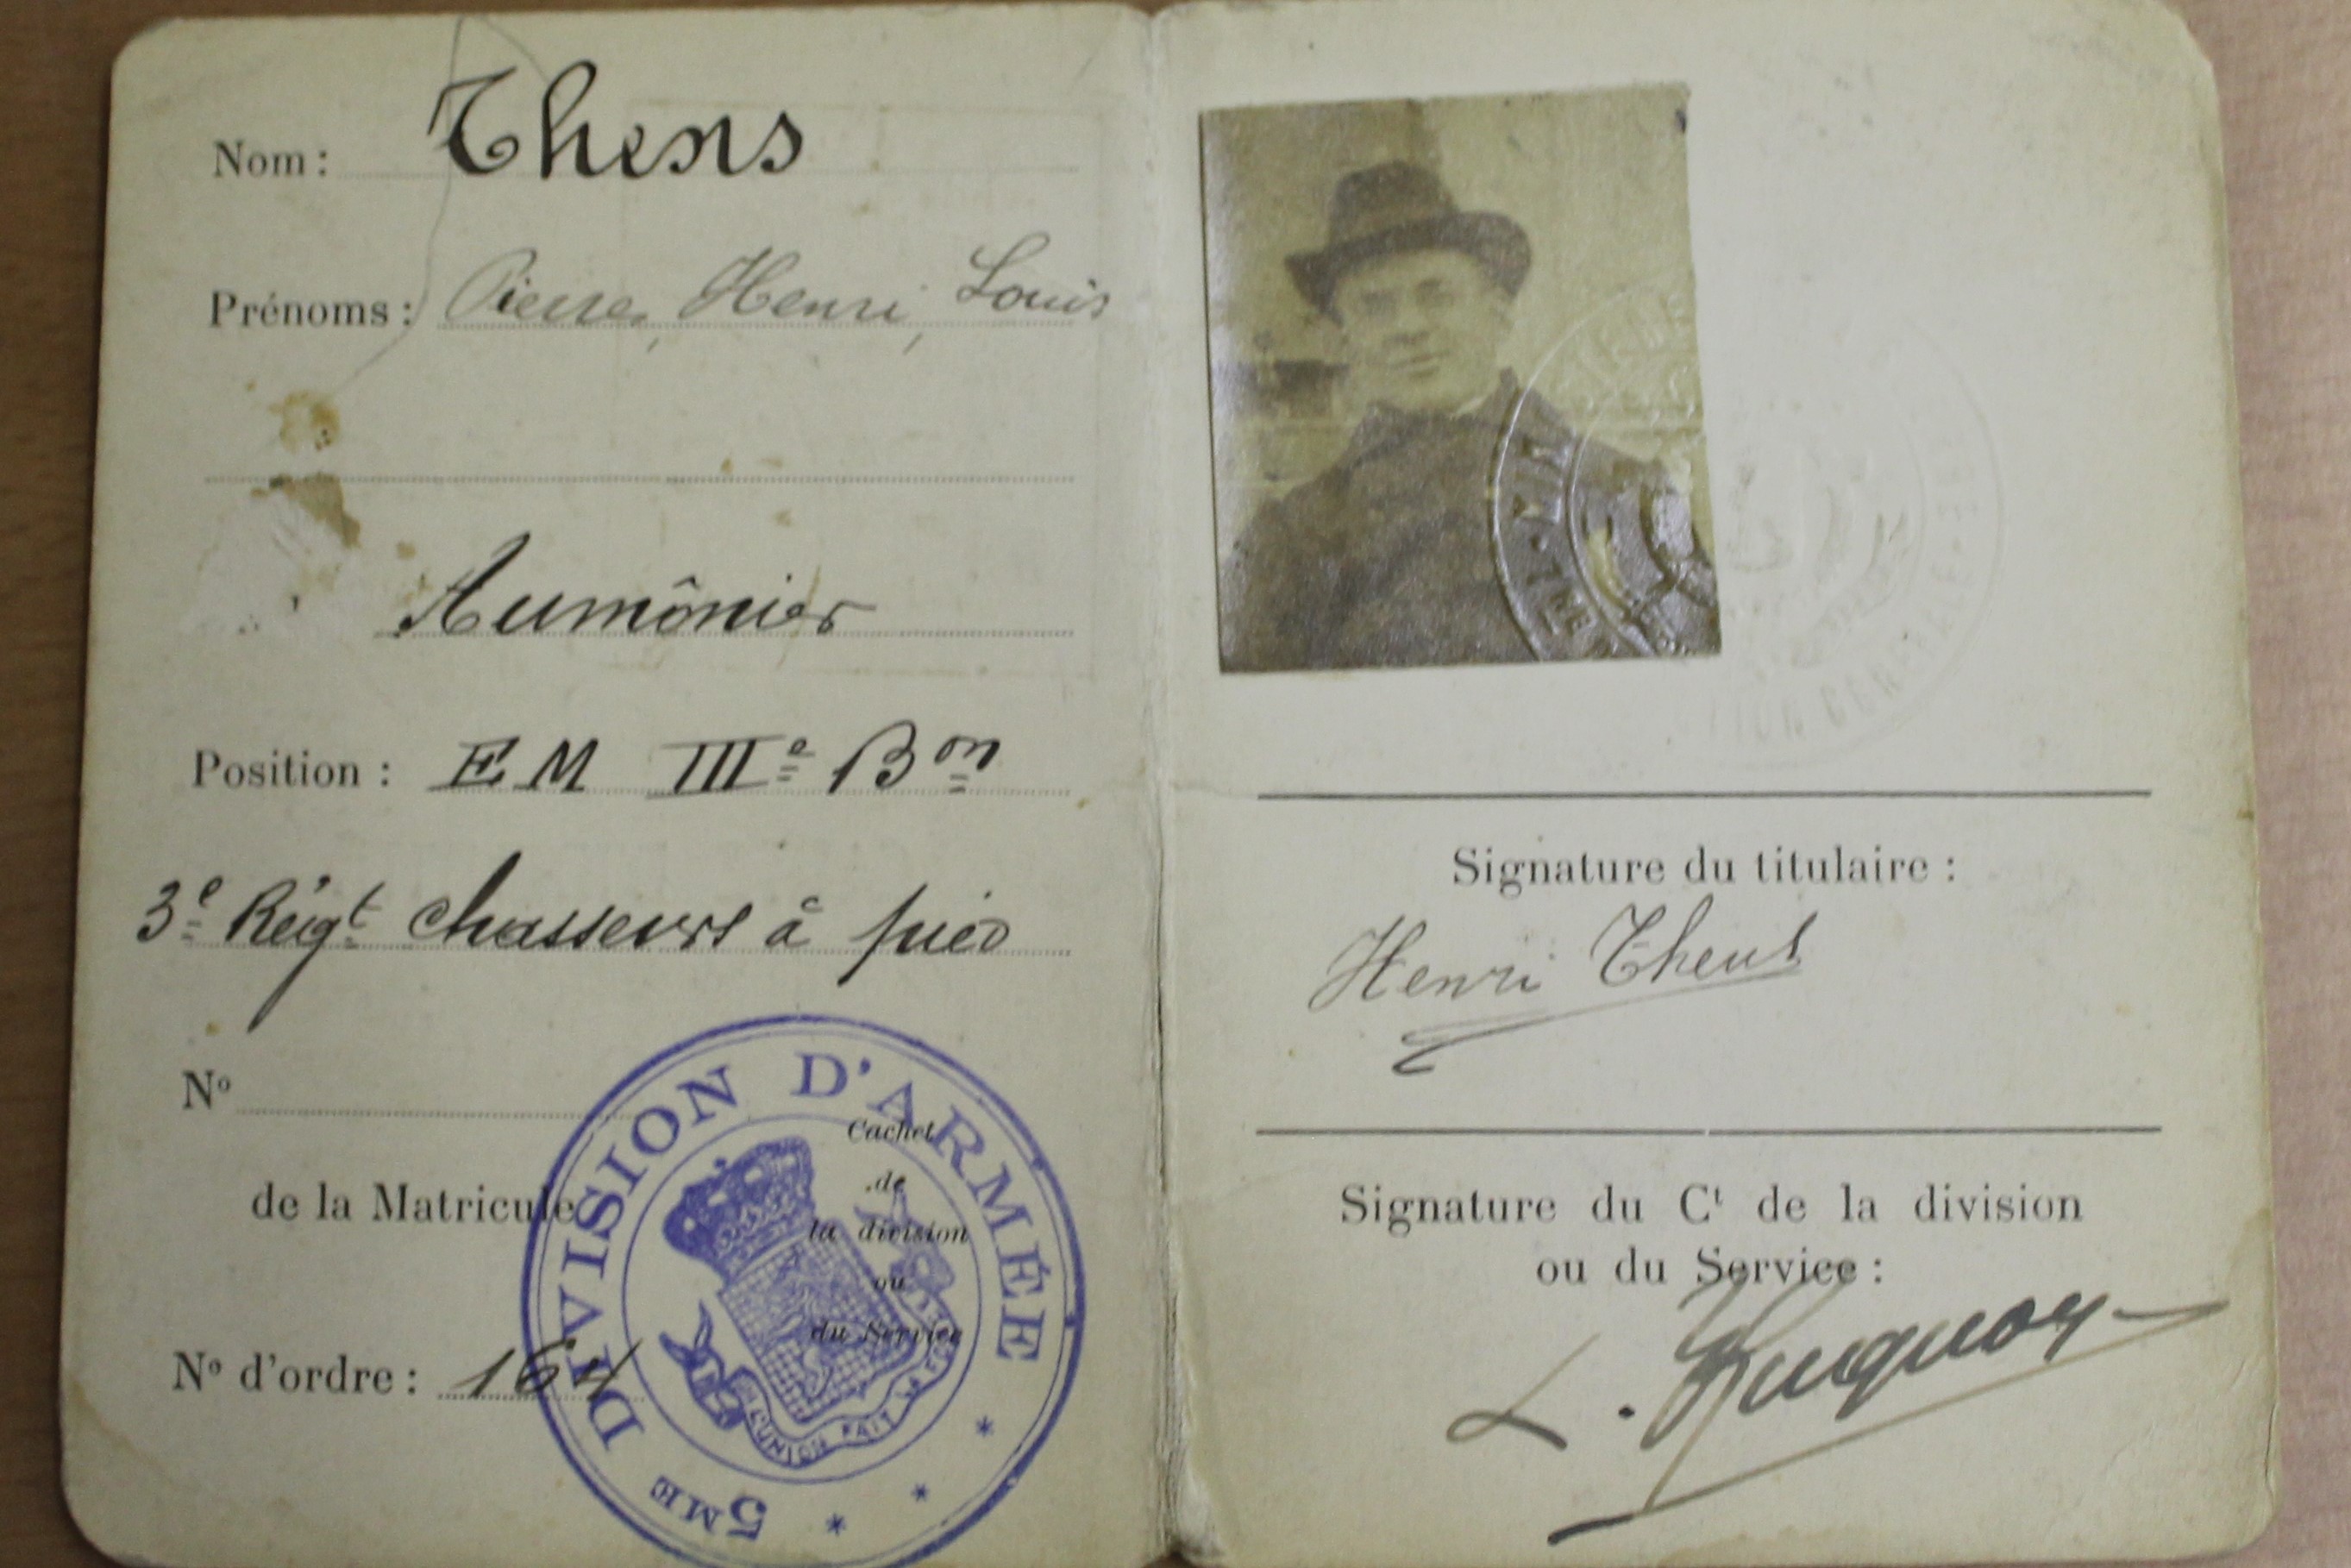 Nom : Thens
Prénoms : Pierre, Henri, Louis
Aumônier
Position : EM IIIe Bon
3e Régt chasseurs à pied
No
de la Matricule
No d'ordre : 164
Cachet
de
la division
ou
du Service
5ME DIVISION D'ARMÉE
L'UNION FAIT LA FORCE
Signature du titulaire :
Henri Thens
Signature du Ct de la division
ou du Service :